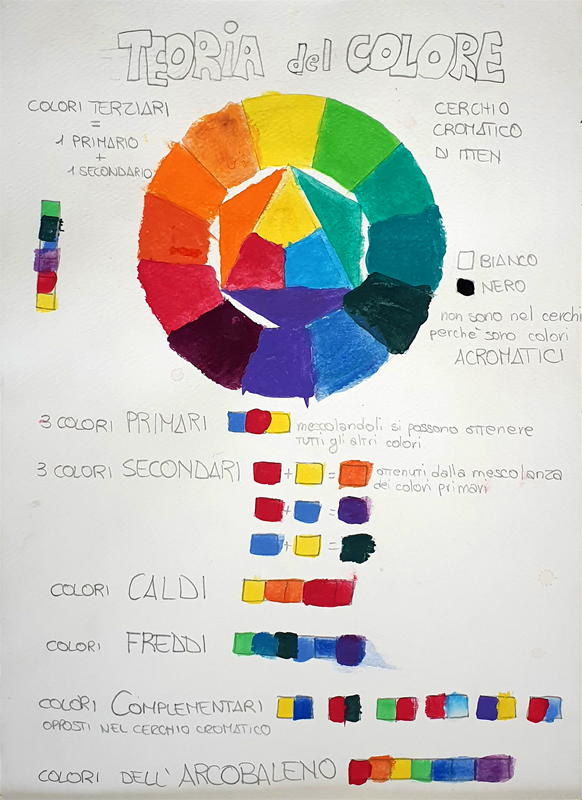 TEORIA del COLORE
COLORI TERZIARI
=
1 PRIMARIO
+
1 SECONDARIO
CERCHIO
CROMATICO
DI ITTEN
BIANCO
NERO
non sono nel cerchi
perche' sono colori
ACROMATICI
3 COLORI PRIMARI
mescolandoli si possono ottenere
TUTTI gli altri colori
3 COLORI SECONDARI
+ =
ottenuti dalla mescolanza
dei colori primari
+ =
+ =
COLORI CALDI
COLORI FREDDI
COLORI COMPLEMENTARI
OPPOSTI NEL CERCHIO CROMATICO
COLORI DELL'ARCOBALENO